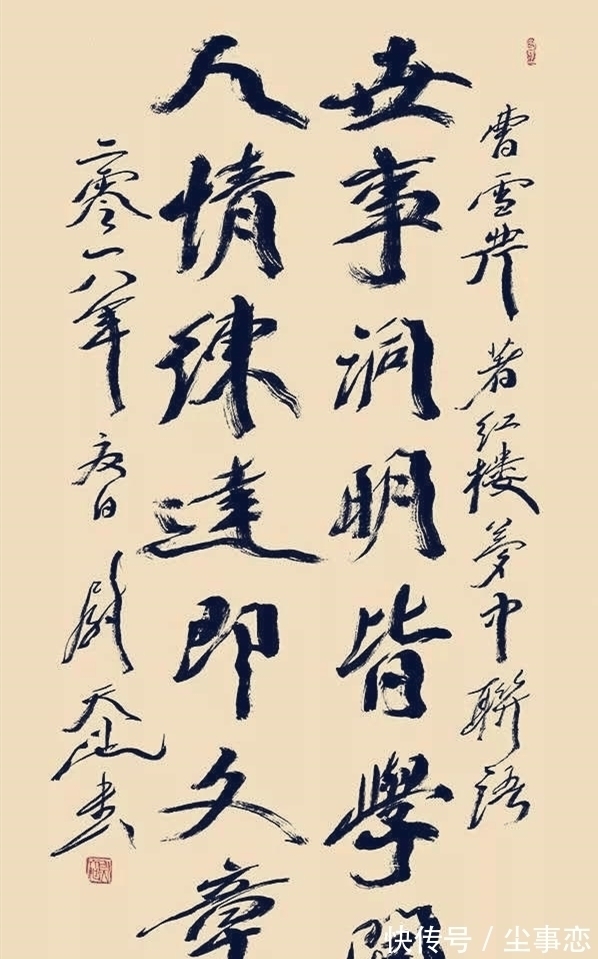 曹雪芹著红楼梦中联语
世事洞明皆學問
人情练达即文章
二零一八年夏日尉天池书
快传号 / 尘事恋